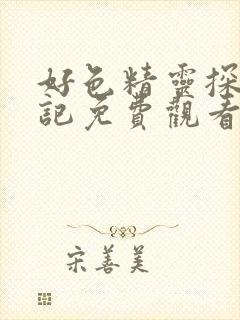 好色精靈探
記免費觀看
宋善美